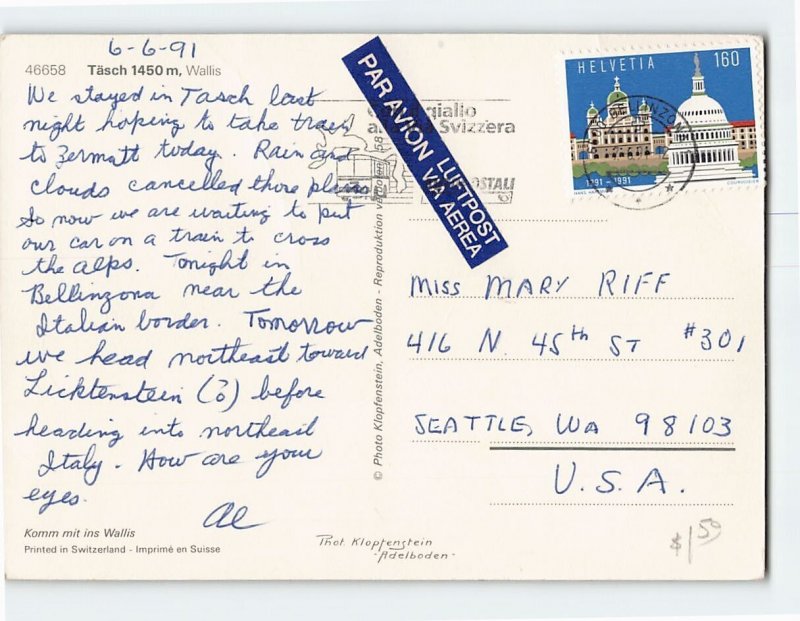 6-6-91
46658 Täsch 1450 m, Wallis
We stayed in Tasch last
night hoping to take train
to Zermatt today. Rain and
clouds cancelled those plans
So now we are waiting to put
our car on a train to cross
the alps. Tonight in
Bellinzona near the
Italian border. Tomorrow
we head northeast toward
Licktenstein (?) before
heading into northeast
Italy. How are your
eyes.
Al
Komm mit ins Wallis
Printed in Switzerland - Imprimé en Suisse
© Photo Klopfenstein, Adelboden - Reproduktion verboten 58
Phot. Klopfenstein
-Adelboden-
giallo
Svizzera
POSTALI
PAR AVION LUFTPOST
VIA AEREA
HELVETIA 160
1291 - 1991
Miss MARY RIFF
416 N. 45th ST #301
SEATTLE, WA 98103
U.S.A.
$1.50